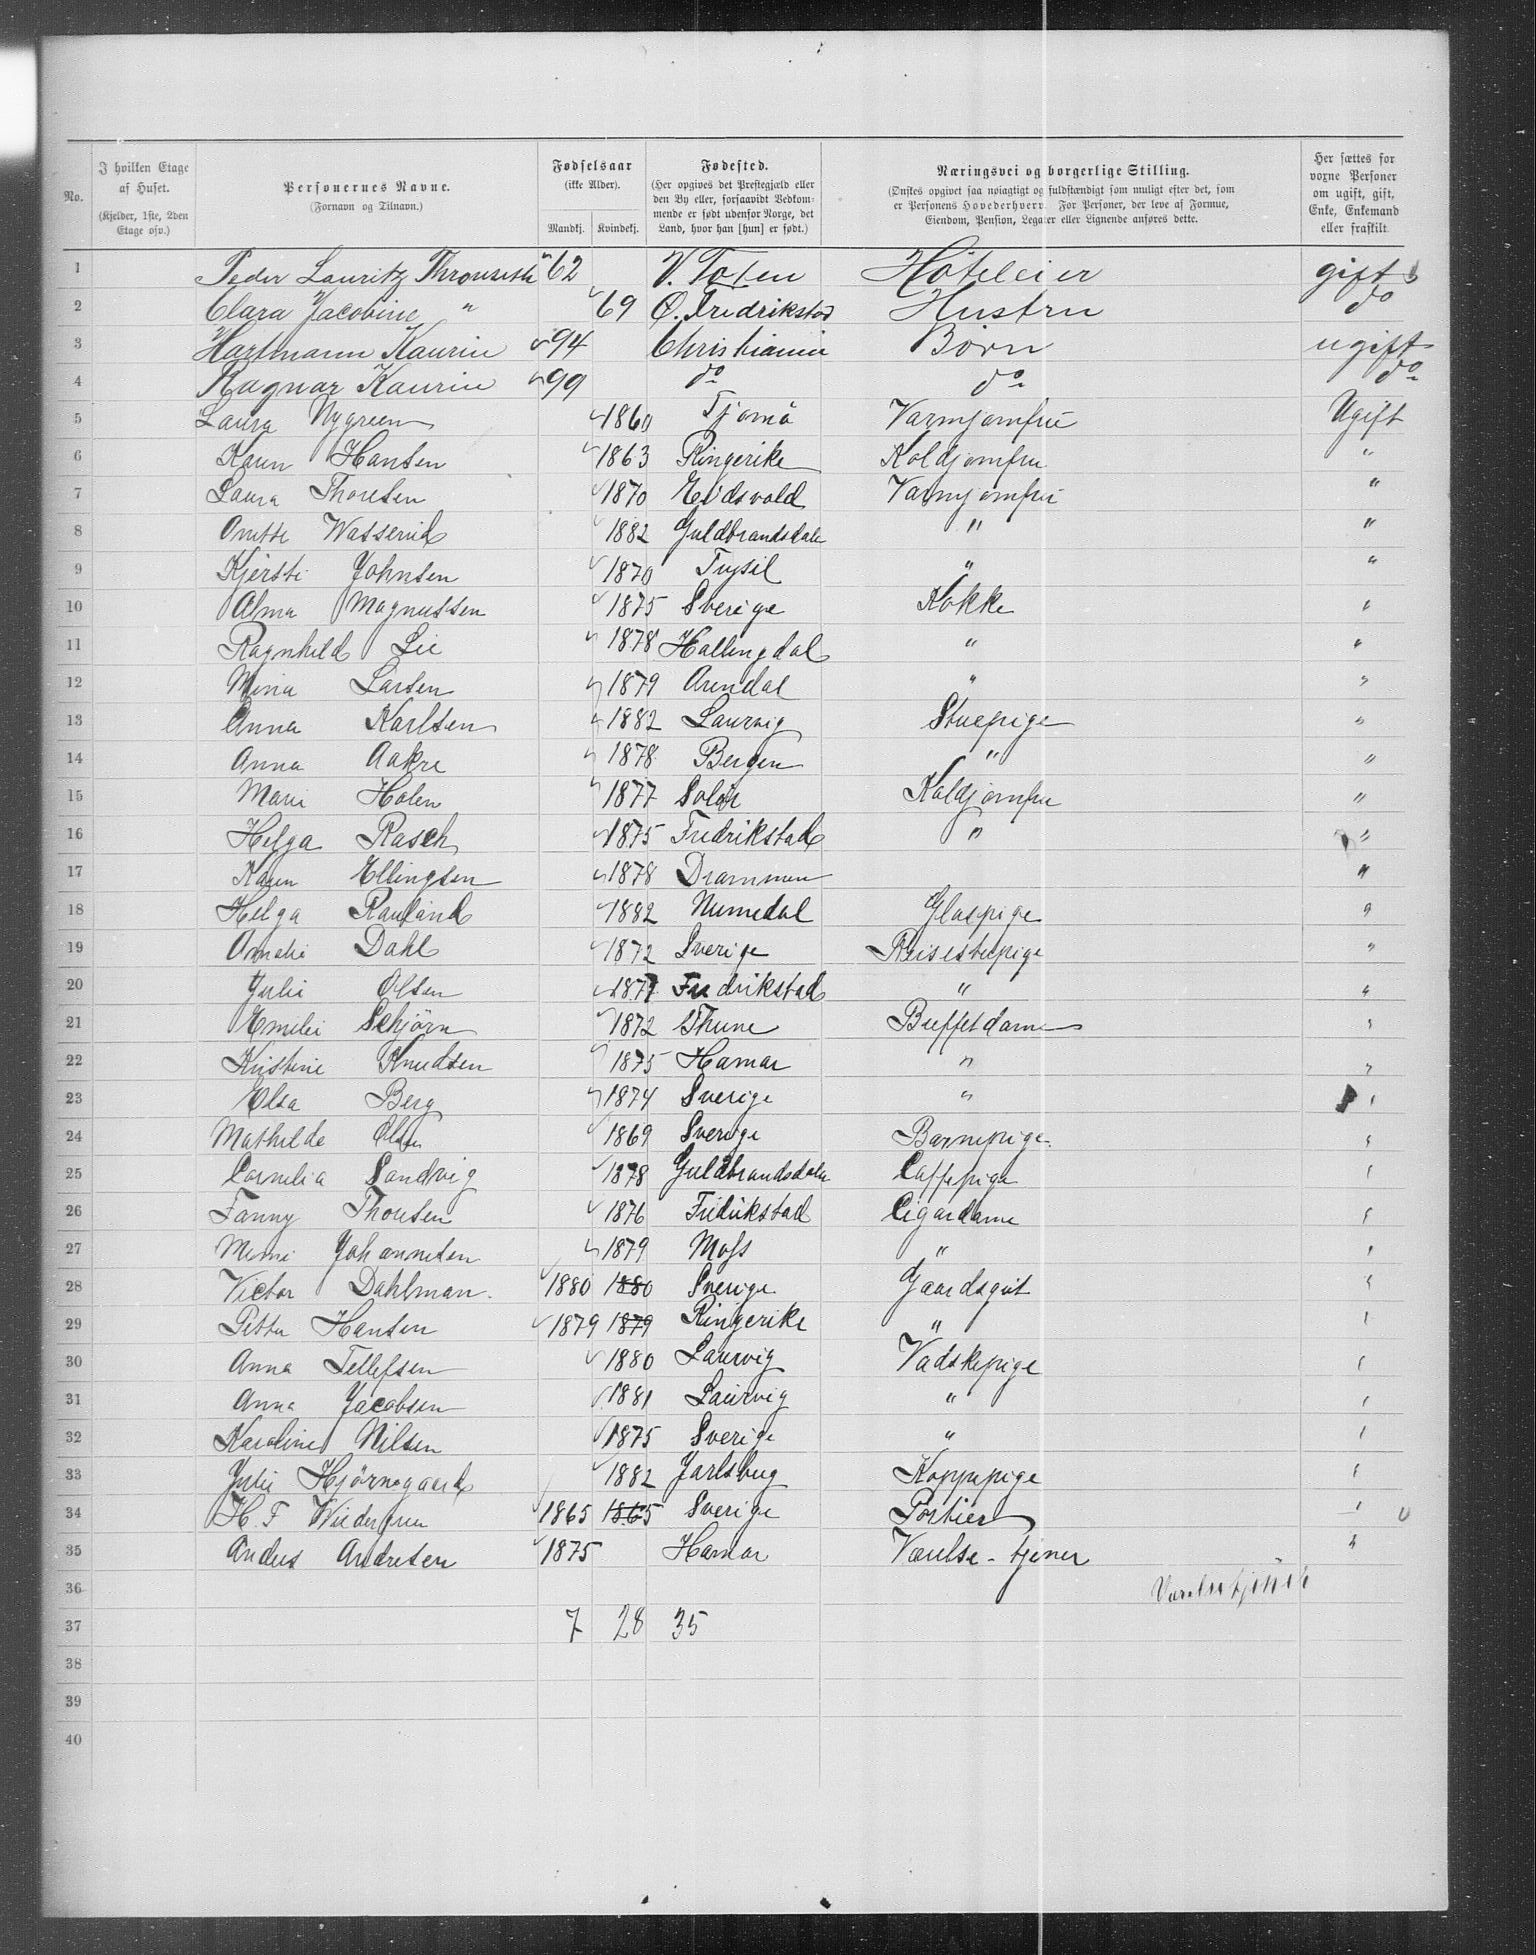 No.
I hvilken Etage af Huset.
(Kjelder, 1ste, 2den Etage osv.)
Personernes Navne.
(Fornavn og Tilnavn.)
Fødselsaar
(ikke Alder).
Mandkj. Kvindekj.
Fødested.
(Her opgives det Prestegjæld eller den By eller, forsaavidt Vedkommende er født udenfor Norge, det Land, hvor han [hun] er født.)
Næringsvei og borgerlige Stilling.
(Ønskes opgivet saa nøiagtigt og fuldstændigt som muligt efter det, som er Personens Hovederhverv. For Personer, der leve af Formue, Eiendom, Pension, Legater eller Lignende anføres dette.
Her sættes for voxne Personer om ugift, gift, Enke, Enkemand eller fraskilt.
1 Peder Lauritz 62 V. Toten Hoteleier gift
2 Clara Jacobine " 69 Ø. Fredrikstad Hustru do
3 Hartmann Kaurin 94 Christiania Børn ugift
4 Ragnar Kaurin 99 do do do
5 Laura Nygreen 1860 Tjømø Varmjomfru Ugift
6 Karen Hansen 1863 Ringerike Koldjomfru "
7 Laura Thoresen 1870 Eidsvold Varmjomfru "
8 1882 Guldbrandsdalen " "
9 Kjersti Johnsen 1870 Trysil " "
10 Alma Magnussen 1875 Sverige Kokke "
11 Ragnhild Lie 1878 Hallingdal " "
12 Mina Larsen 1879 Arendal " "
13 Anna Karlsen 1882 Laurvig Stuepige "
14 Anna Aakre 1878 Bergen " "
15 Marie Holen 1877 Solør Koldjomfru "
16 Helga Rasch 1875 Fredrikstad " "
17 Karen Ellingsen 1878 Drammen "
18 Helga Rauland 1882 Numedal Glaspige "
19 Amalie Dahl 1872 Sverige Reisestuepige "
20 Julie Olsen 1877 Fredrikstad " "
21 Emilie Schjörn 1872 Thune Buffetdame "
22 Kristine Knudsen 1875 Hamar " "
23 Elsa Berg 1874 Sverige " "
24 Mathilde Olsen 1869 Sverige Barnepige "
25 Cornelia Sandvig 1878 Guldbrandsdalen Caffepige "
26 Fanny Thoresen 1876 Fredrikstad Cigardame "
27 Mimi Johannesen 1879 Moss " "
28 Victor Dahlman 1880 1880 Sverige Gaardsgut "
29 Petter Hansen 1879 1879 Ringerike " "
30 Anna Tellefsen 1880 Laurvig Vadskepige "
31 Anna Jacobsen 1881 Laurvig " "
32 Karoline Nilsen 1875 Sverige " "
33 Julie Hjörnegaard 1882 Jarlsberg Koppepige "
34 H. F. 1865 1865 Sverige Portier "
35 Anders Andresen 1875 Hamar Værelse-tjener "
36 Værelsetjener
37 7 28 35
38
39
40